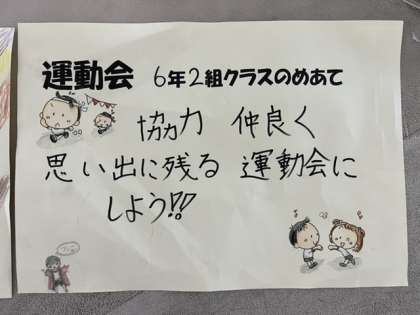 運動会 6年2組クラスのめあて
協力 仲良く
思い出に残る 運動会に
しよう!!